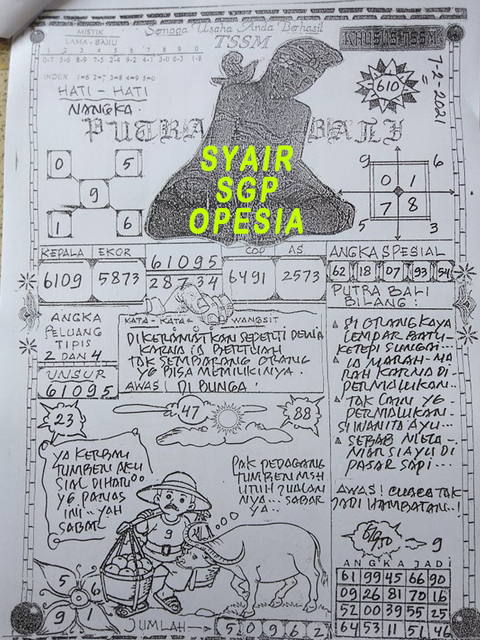 Semoga Usaha Anda Berhasil
TSSM
KHUSUS TSSM
MISTIK
LAMA - BARU
1 2 3 4 5 6 7 8 9 0
INDEX 1=6 2=7 3=8 4=9 5=0
HATI - HATI
NANGKA.
7-2-2021
610
PUTRA BALI
SYAIR
SGP
OPESIA
0 5
9
1 6
9 6
0 1
7 8
5 3
KEPALA EKOR
6109 5873
61095
28734
COP AS
6491 2573
ANGKA SPESIAL
62 18 07 93 54
PUTRA BALI
BILANG :
ANGKA
PELUANG
TIPIS
2 DAN 4
UNSUR
61095
KATA - KATA WANGSIT
DIKERAMATKAN SEPERTI DEWA
KARNA IA BERTUAH
TAK SEMBARANG ORANG
YG BISA MEMILIKINYA.
AWAS! DI BUNGA!
81 ORANG KAYA
LEMPAR BATU
IA MARAH-MA
RAH KARNA DI
PERMALUKAN..
TAK LAIN YG
PERMALUKAN
SI WANITA AYU...
SEBAB
PASAR SAPI...
AWAS! CUACA TAK
JADI HAMBATAN..!
23
47
88
YA KERBAU
TUMBEN AKU
SIAL DIHARI
YG PANAS
INI...YAH
SABAR
PAK PEDAGANG
TUMBEN MSH
UTUH JUALAN
NYA... SABAR
YA..
9
9
ANGKA JADI
61 99 45 66 90
09 26 81 70 16
52 00 39 55 25
64 53 11 51 46
5 6
9 1
JUMLAH
5 0 9 6 2